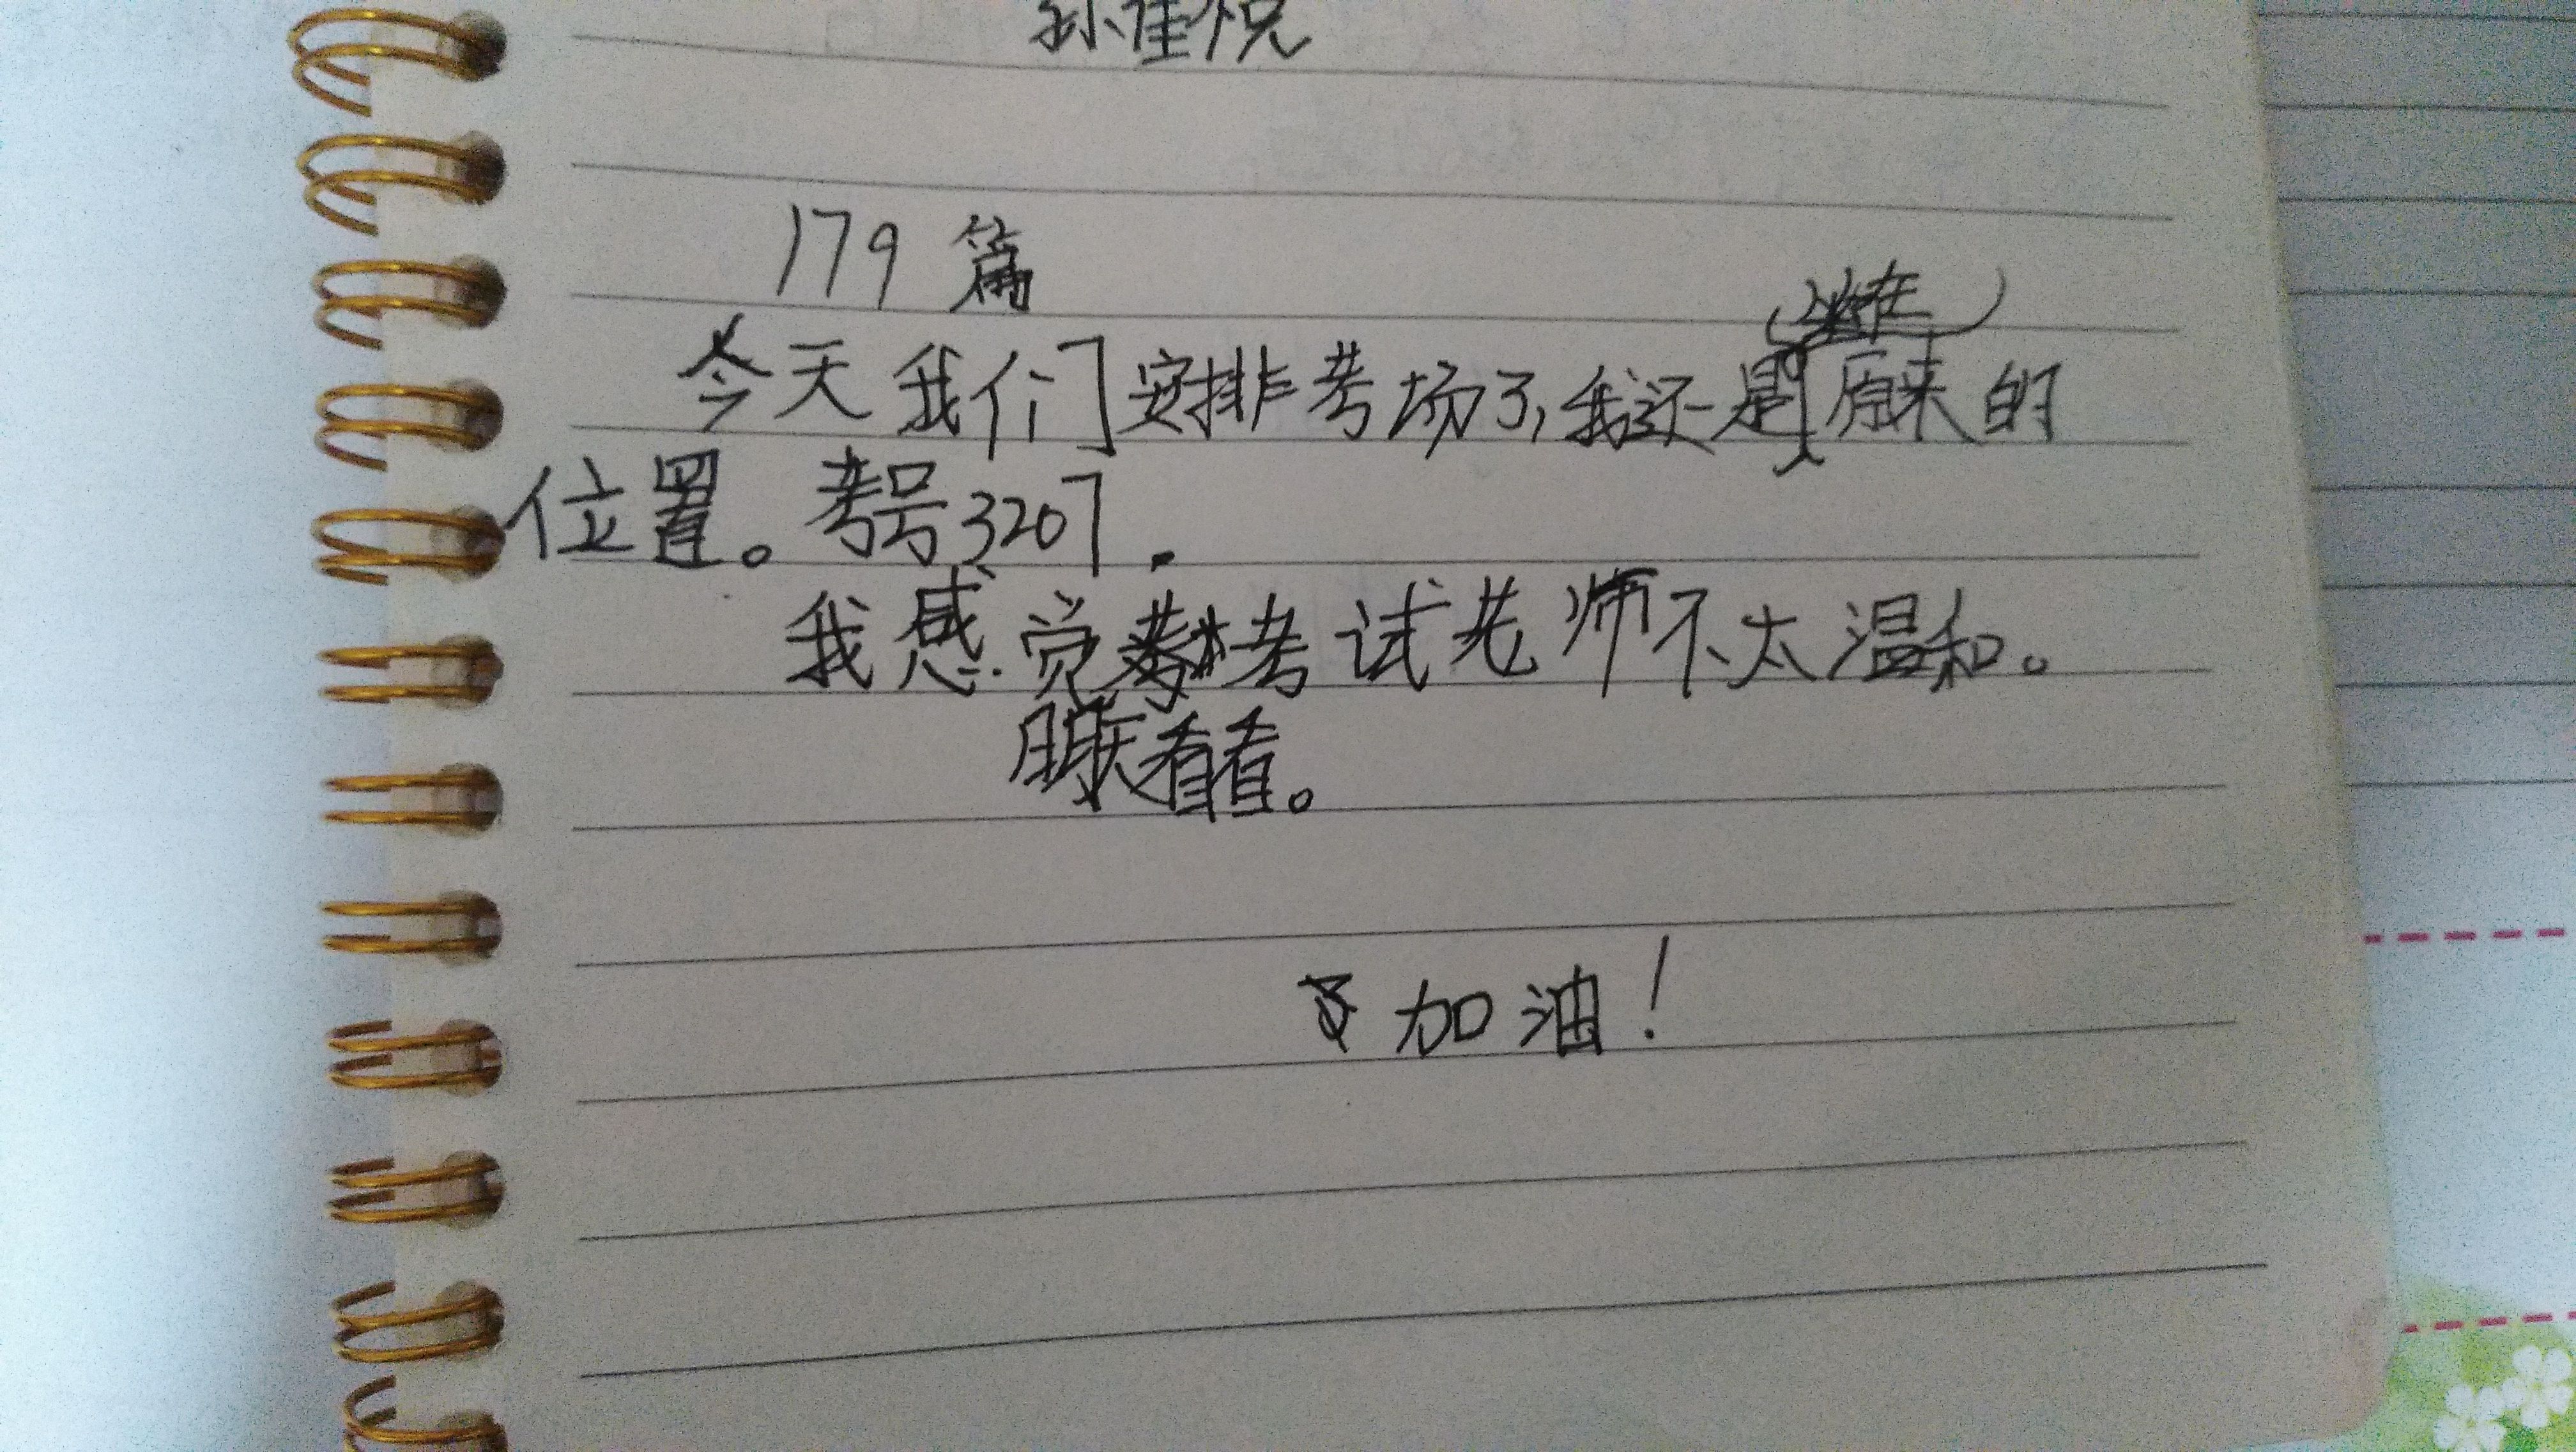 孙佳悦
179 篇
今天我们安排考场了,我还是坐在原来的
位置。考号3207.
我感觉考试老师不太温和。
明天看看。
加油!